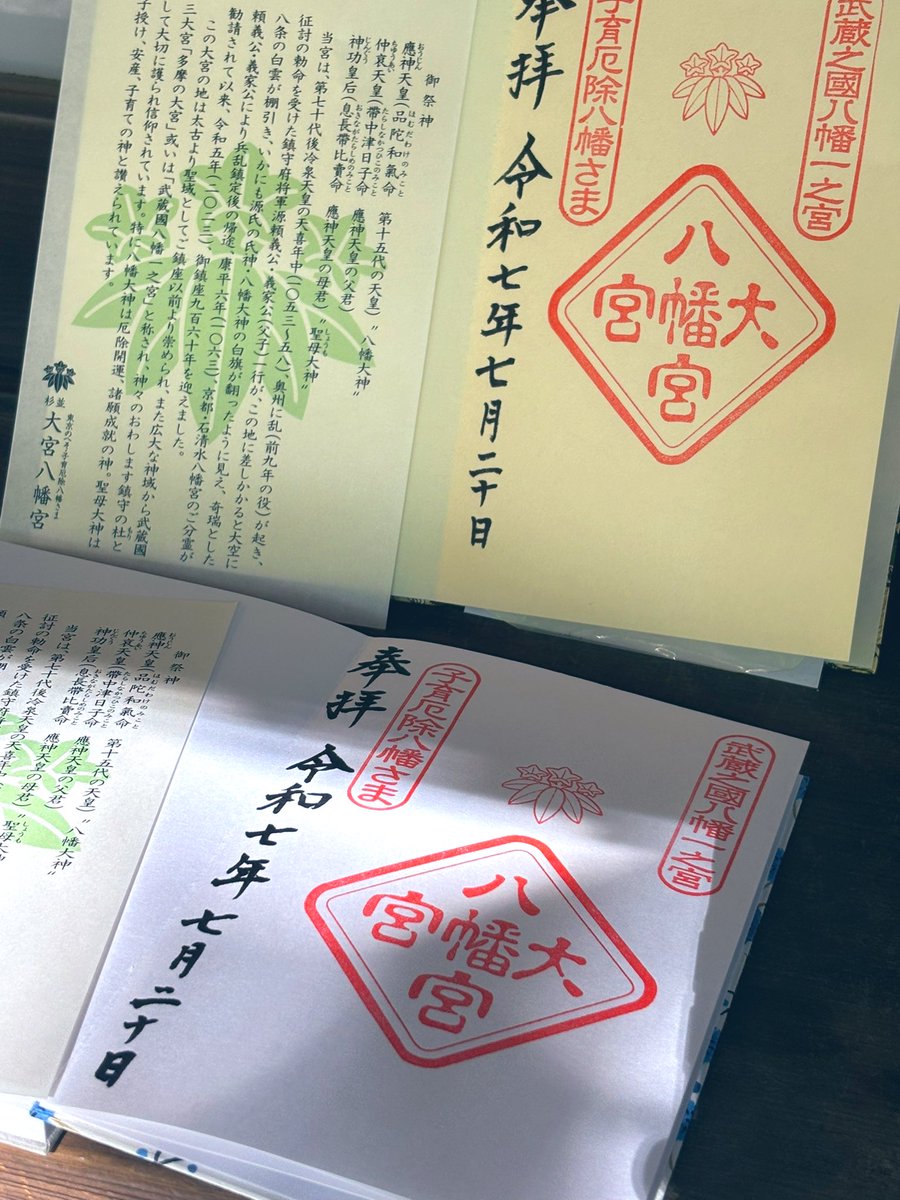 武蔵之國八幡一之宮
大宮
八幡宮
子育厄除八幡さま
奉拝 令和七年七月二十日
御祭神
應神天皇(品陀和氣命 第十五代の天皇)〝八幡大神〟
仲哀天皇(帶中津日子命 應神天皇の父君)
神功皇后(息長帶比賣命 應神天皇の母君)〝聖母大神〟
当宮は、第七十代後冷泉天皇の天喜年中(一〇五三〜五八)、奥州に乱(前九年の役)が起き、
征討の勅命を受けた鎮守府将軍源頼義公・義家公(父子)一行が、この地に差しかかると大空に
八条の白雲が棚引き、いかにも源氏の氏神・八幡大神の白旗が翻ったように見え、奇瑞とした
頼義公・義家公により兵乱鎮定後の帰途、康平六年(一〇六三)、京都・石清水八幡宮のご分霊が
勧請されて以来、令和五年(二〇二三)、御鎮座九百六十年を迎えました。
この大宮の地は太古より聖域としてご鎮座以前より崇められ、また広大な神域から武蔵國
三大宮「多摩の大宮」或いは「武蔵國八幡一之宮」と称され、神々のおわします鎮守の杜と
して大切に護られ信仰されています。特に八幡大神は厄除開運、諸願成就の神。聖母大神は
子授け、安産、子育ての神と讃えられています。
東京のへそ・子育厄除八幡さま
杉並 大宮八幡宮
武蔵之國八幡一之宮
大宮
八幡宮
子育厄除八幡さま
奉拝 令和七年七月二十日
御祭神
應神天皇(品陀和氣命 第十五代の天皇)〝八幡大神〟
仲哀天皇(帶中津日子命 應神天皇の父君)
神功皇后(息長帶比賣命 應神天皇の母君)〝聖母大
当宮は、第七十代後冷泉天皇の天喜年中
征討の勅命を受けた鎮守府将
八条の白雲が棚